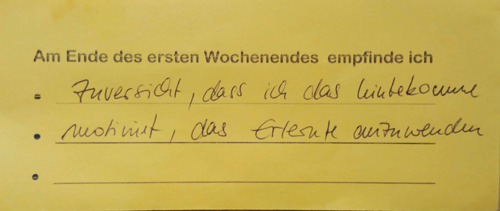 Am Ende des ersten Wochenendes empfinde ich
Zuversicht, dass ich das hinbekomme
motiviert, das Erlernte anzuwenden